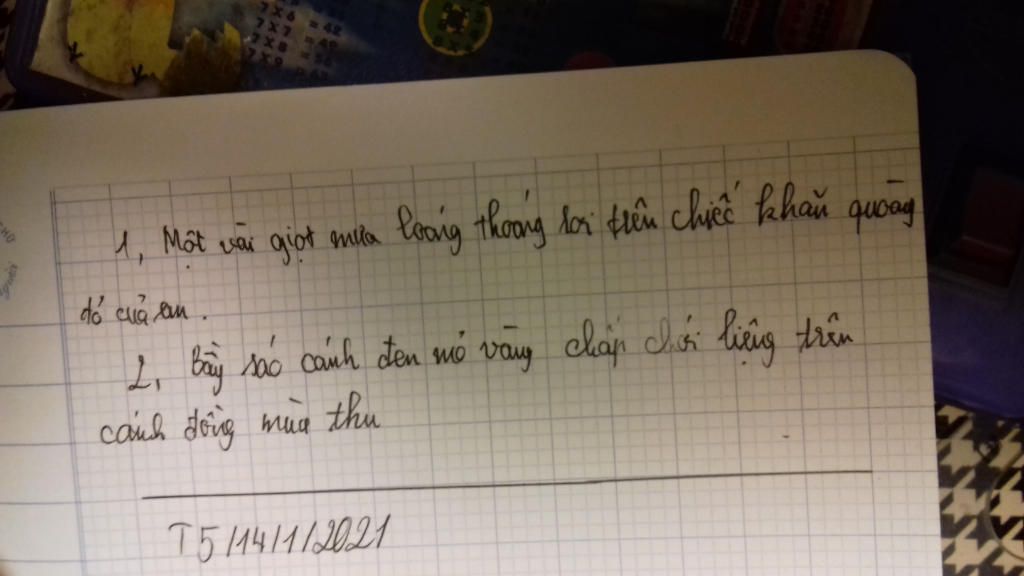 7 x 6 = 42
7 x 7
7 x 8
7 x 9
1, Một vài giọt mưa loáng thoáng rơi trên chiếc khăn quàng
đỏ của em.
2, Bầy sáo cánh đen mỏ vàng chấp chới liệng trên
cánh đồng mùa thu
T5/14/1/2021